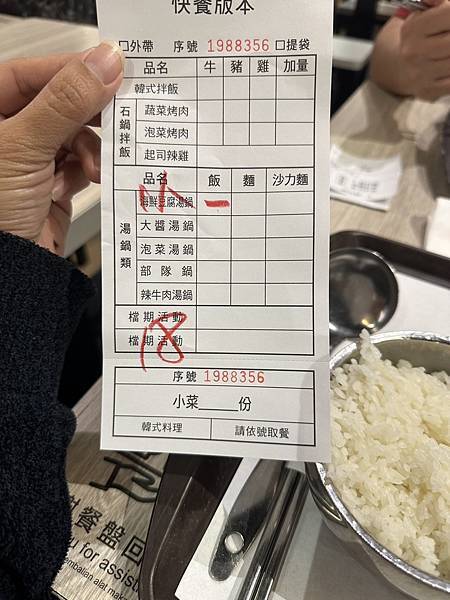 快餐版本
口外帶 序號 1988356 口提袋
品名 牛 豬 雞 加量
韓式拌飯
石鍋拌飯
蔬菜烤肉
泡菜烤肉
起司辣雞
品名 飯 麵 沙力麵
湯鍋類
海鮮豆腐湯鍋 一
大醬湯鍋
泡菜湯鍋
部隊鍋
辣牛肉湯鍋
檔期活動
檔期活動
序號 1988356
小菜____份
韓式料理 請依號取餐
餐盤回
for assist